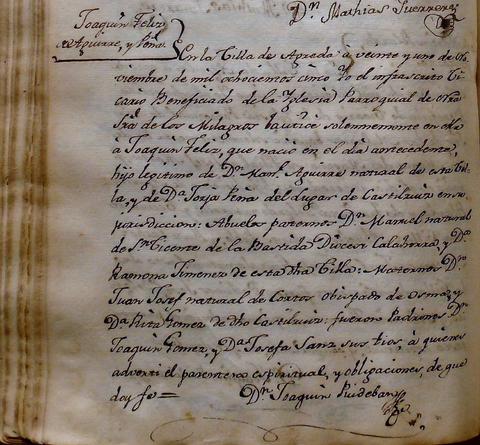 Dn. Mathias Guerrero
Joaquin Feliz
de Aguirre, y Peña
En la Villa de Agreda à veinte y uno de No
viembre de mil ochocientos cinco Yo el infrascrito Vi
cario Beneficiado de la Yglesia Parroquial de Nra
Sra de los Milagros bautice solennemente en ella
a Joaquin Feliz, que nació en el dia antecedente,
hijo legitimo de Dn. Manl. Aguirre natural de esta Vi
lla, y de Da. Peña del lugar de Castilruiz en su
jurisdiccion: Abuelos paternos Dn. Manuel natural
de Sn. Vicente de la Bastida Diocesi Calahorra, y Da.
Ramona Ximenez de esta dha Villa: Maternos Dn.
Juan Josef natural de obispado de Osma, y
Da. Rita Gomez de dho Castilruiz: fueron Padrinos Dn.
Joaquin Gomez, y Da. Josefa Sanz sus tios, à quienes
adverti el parentesco espiritual, y obligaciones, de que
doy fe=
Dn. Joaquin Ruideban